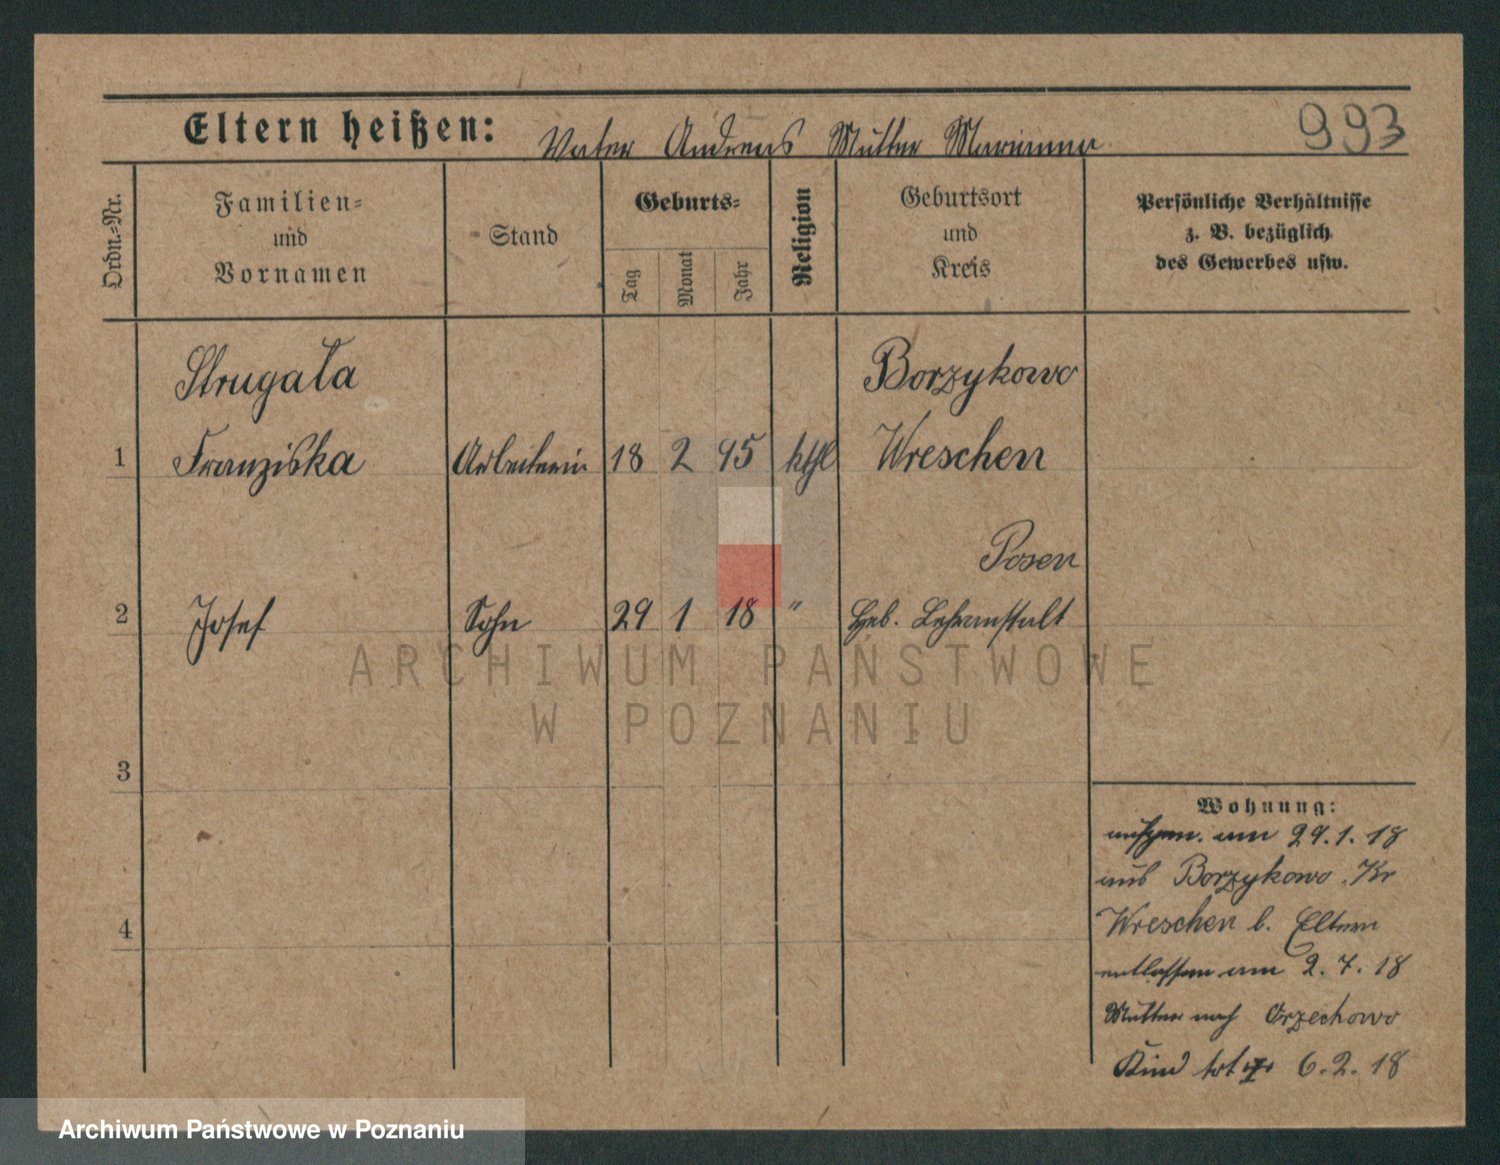 993
Eltern heißen: Vater Andreas Mutter Marianna
Ordn.-Nr.
Familien-
und
Vornamen
Stand
Geburts-
Tag
Monat
Jahr
Religion
Geburtsort
und
Kreis
Persönliche Verhältnisse
z. B. bezüglich
des Gewerbes usw.
Strugała Borzykowo
1 Franziska Arbeiterin 18 2 95 kthl Wreschen
Posen
2 Josef Sohn 29 1 18 " Heb. Lehranstalt
3
4
Wohnung:
aufgen. am 29.1.18
aus Borzykowo Kr
Wreschen b. Eltern
entlassen am 2.7.18
Mutter nach Orzechowo
Kind tot 6.2.18
ARCHIWUM PAŃSTWOWE
W POZNANIU
Archiwum Państwowe w Poznaniu